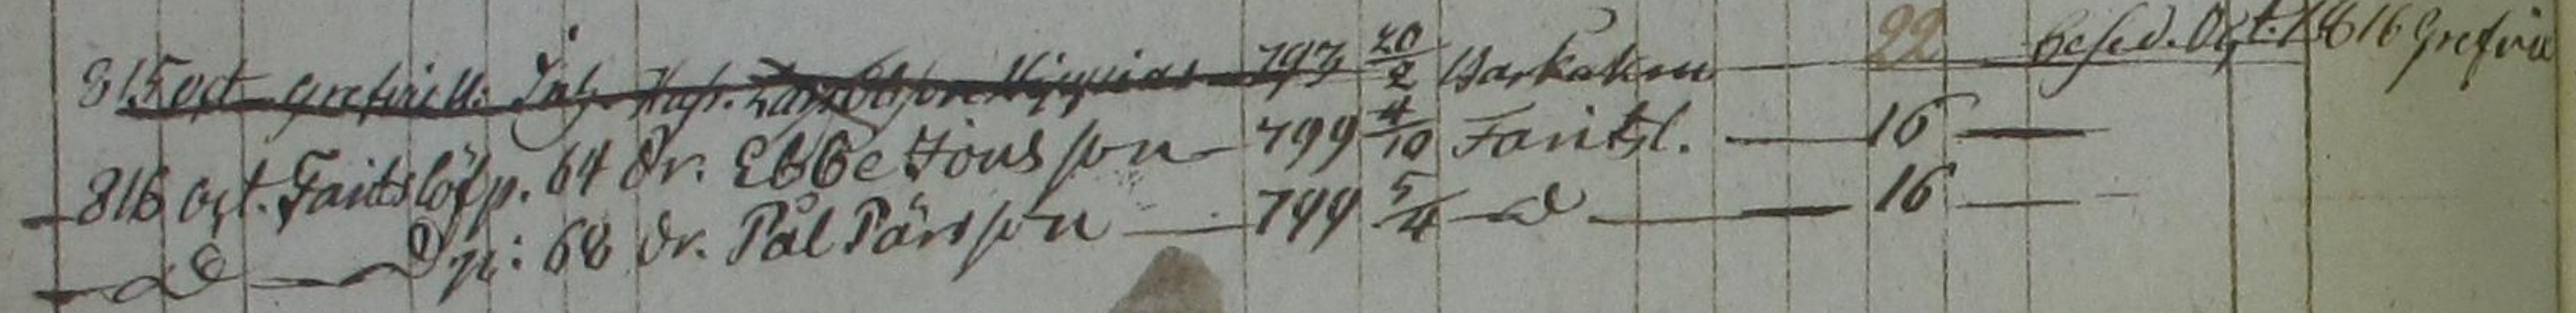 815 oct. Grefvie 793 20/2 Barkakra 22 besed. Oct. 1816 Grefvie
816 oct. Faritslöf p. 64 Dr. Ebbe Jönsson 799 4/10 Faritsl. 16
D D p: 68 Dr. Pål Pärsson 799 5/4 D 16